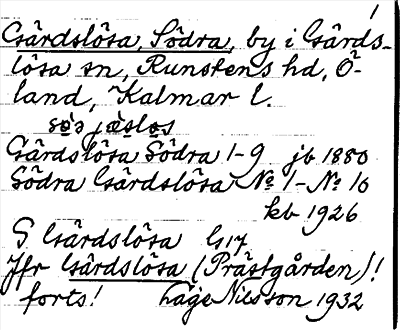 1
Gärdslösa, Södra, by i Gärds-
lösa sn, Runstens hd, Ö-
land, Kalmar l.
Gärdslösa Södra 1-9 jb 1880
Södra Gärdslösa № 1-№ 10
kb 1926
S. Gärdslösa G17
Jfr Gärdslösa (Prästgården)!
forts! Läge Nilsson 1932